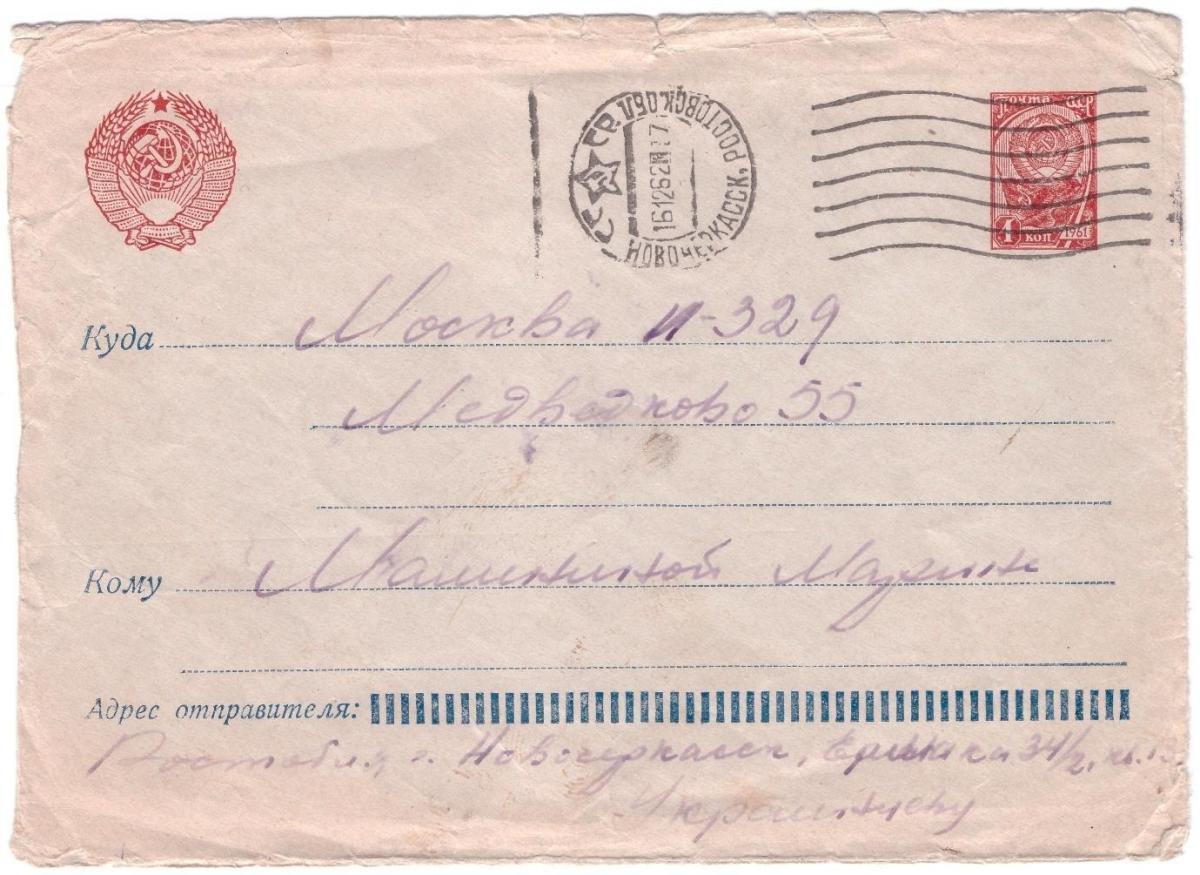 СССР
НОВОЧЕРКАССК, РОСТОВСК ОБЛ
161262
ПОЧТА СССР
4 КОП 1961
Куда Москва И-329
Медведково 55
Кому Машининой Марии
Адрес отправителя:
г. Новочеркасск, Ермака 34/2, кв.